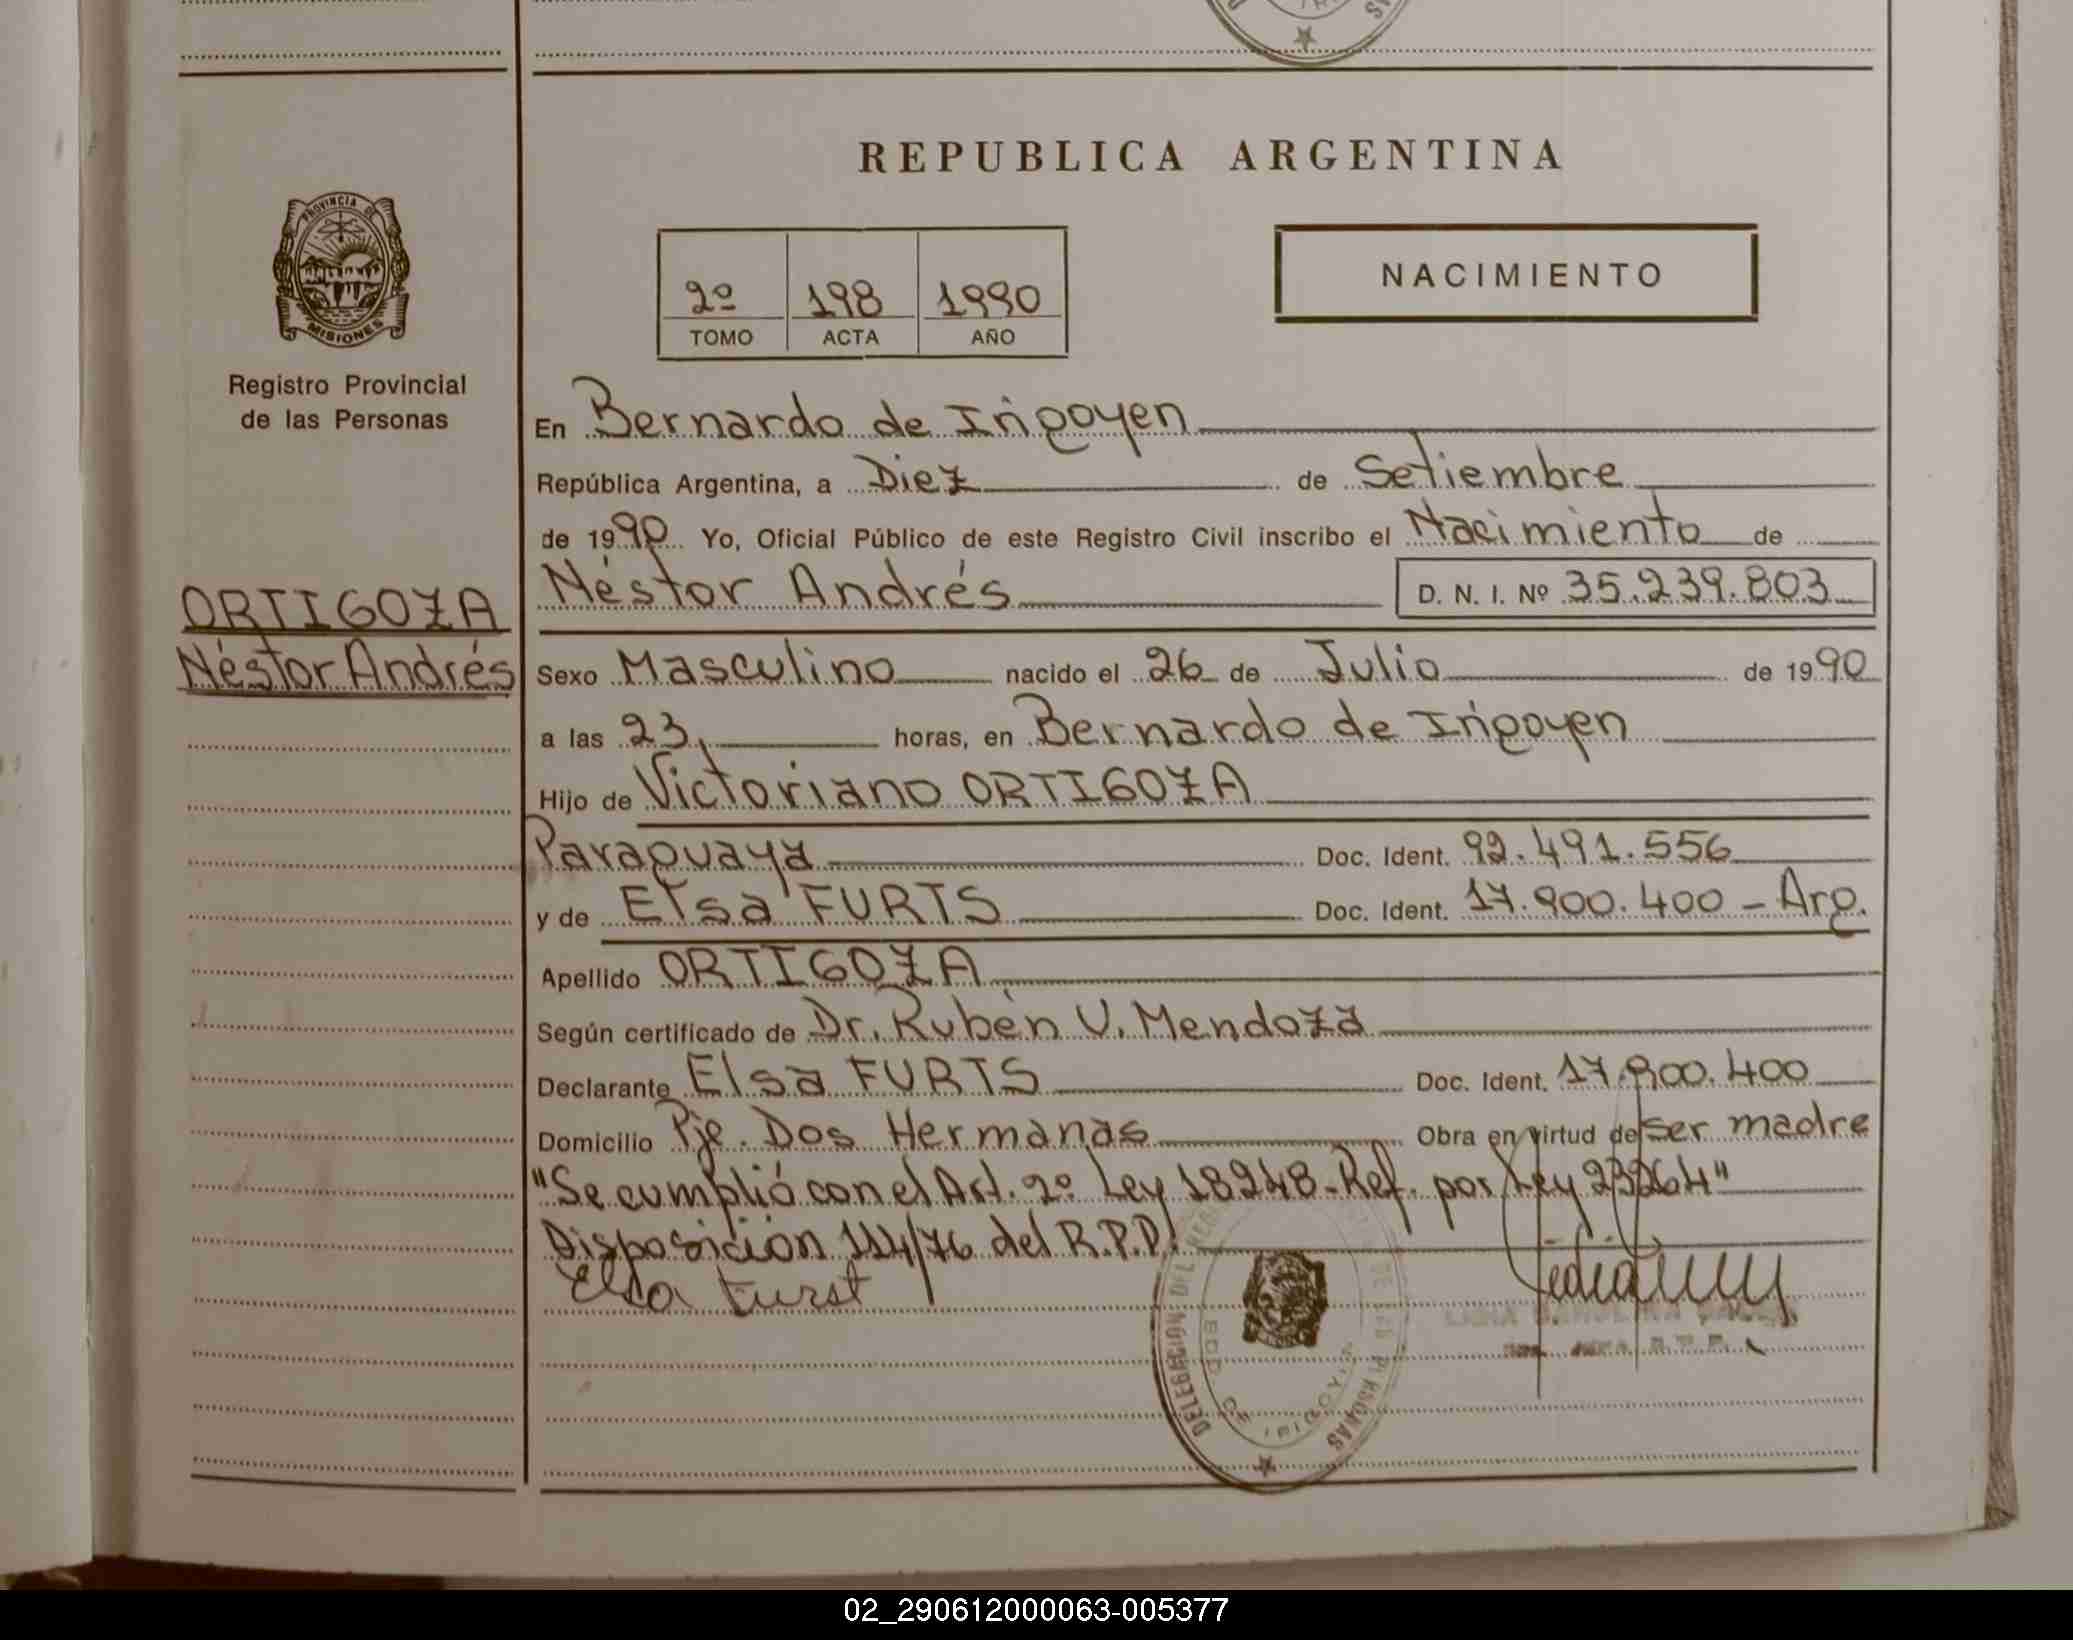 REPUBLICA ARGENTINA
PROVINCIA DE
MISIONES
Registro Provincial
de las Personas
2º 198 1990
TOMO ACTA AÑO
NACIMIENTO
En Bernardo de Irigoyen
República Argentina, a Diez de Setiembre
de 1990 Yo, Oficial Público de este Registro Civil inscribo el Nacimiento de
Néstor Andrés D. N. I. Nº 35.239.803
ORTIGOZA
Néstor Andrés
Sexo Masculino nacido el 26 de Julio de 1990
a las 23, horas, en Bernardo de Irigoyen
Hijo de Victoriano ORTIGOZA
Paraguaya Doc. Ident. 92.491.556
y de Elsa FURTS Doc. Ident. 17.900.400 - Arg.
Apellido ORTIGOZA
Según certificado de Dr. Rubén V. Mendoza
Declarante Elsa FURTS Doc. Ident. 17.900.400
Domicilio Pje. Dos Hermanas Obra en virtud de ser madre
"Se cumplió con el Art. 2º Ley 18248-Ref. por Ley 23264"
Disposición 114/76 del R.P.P.
Elsa Furst
DELEGACIÓN DEL DE LAS PERSONAS
BDO DE IRIGOYEN
02_290612000063-005377